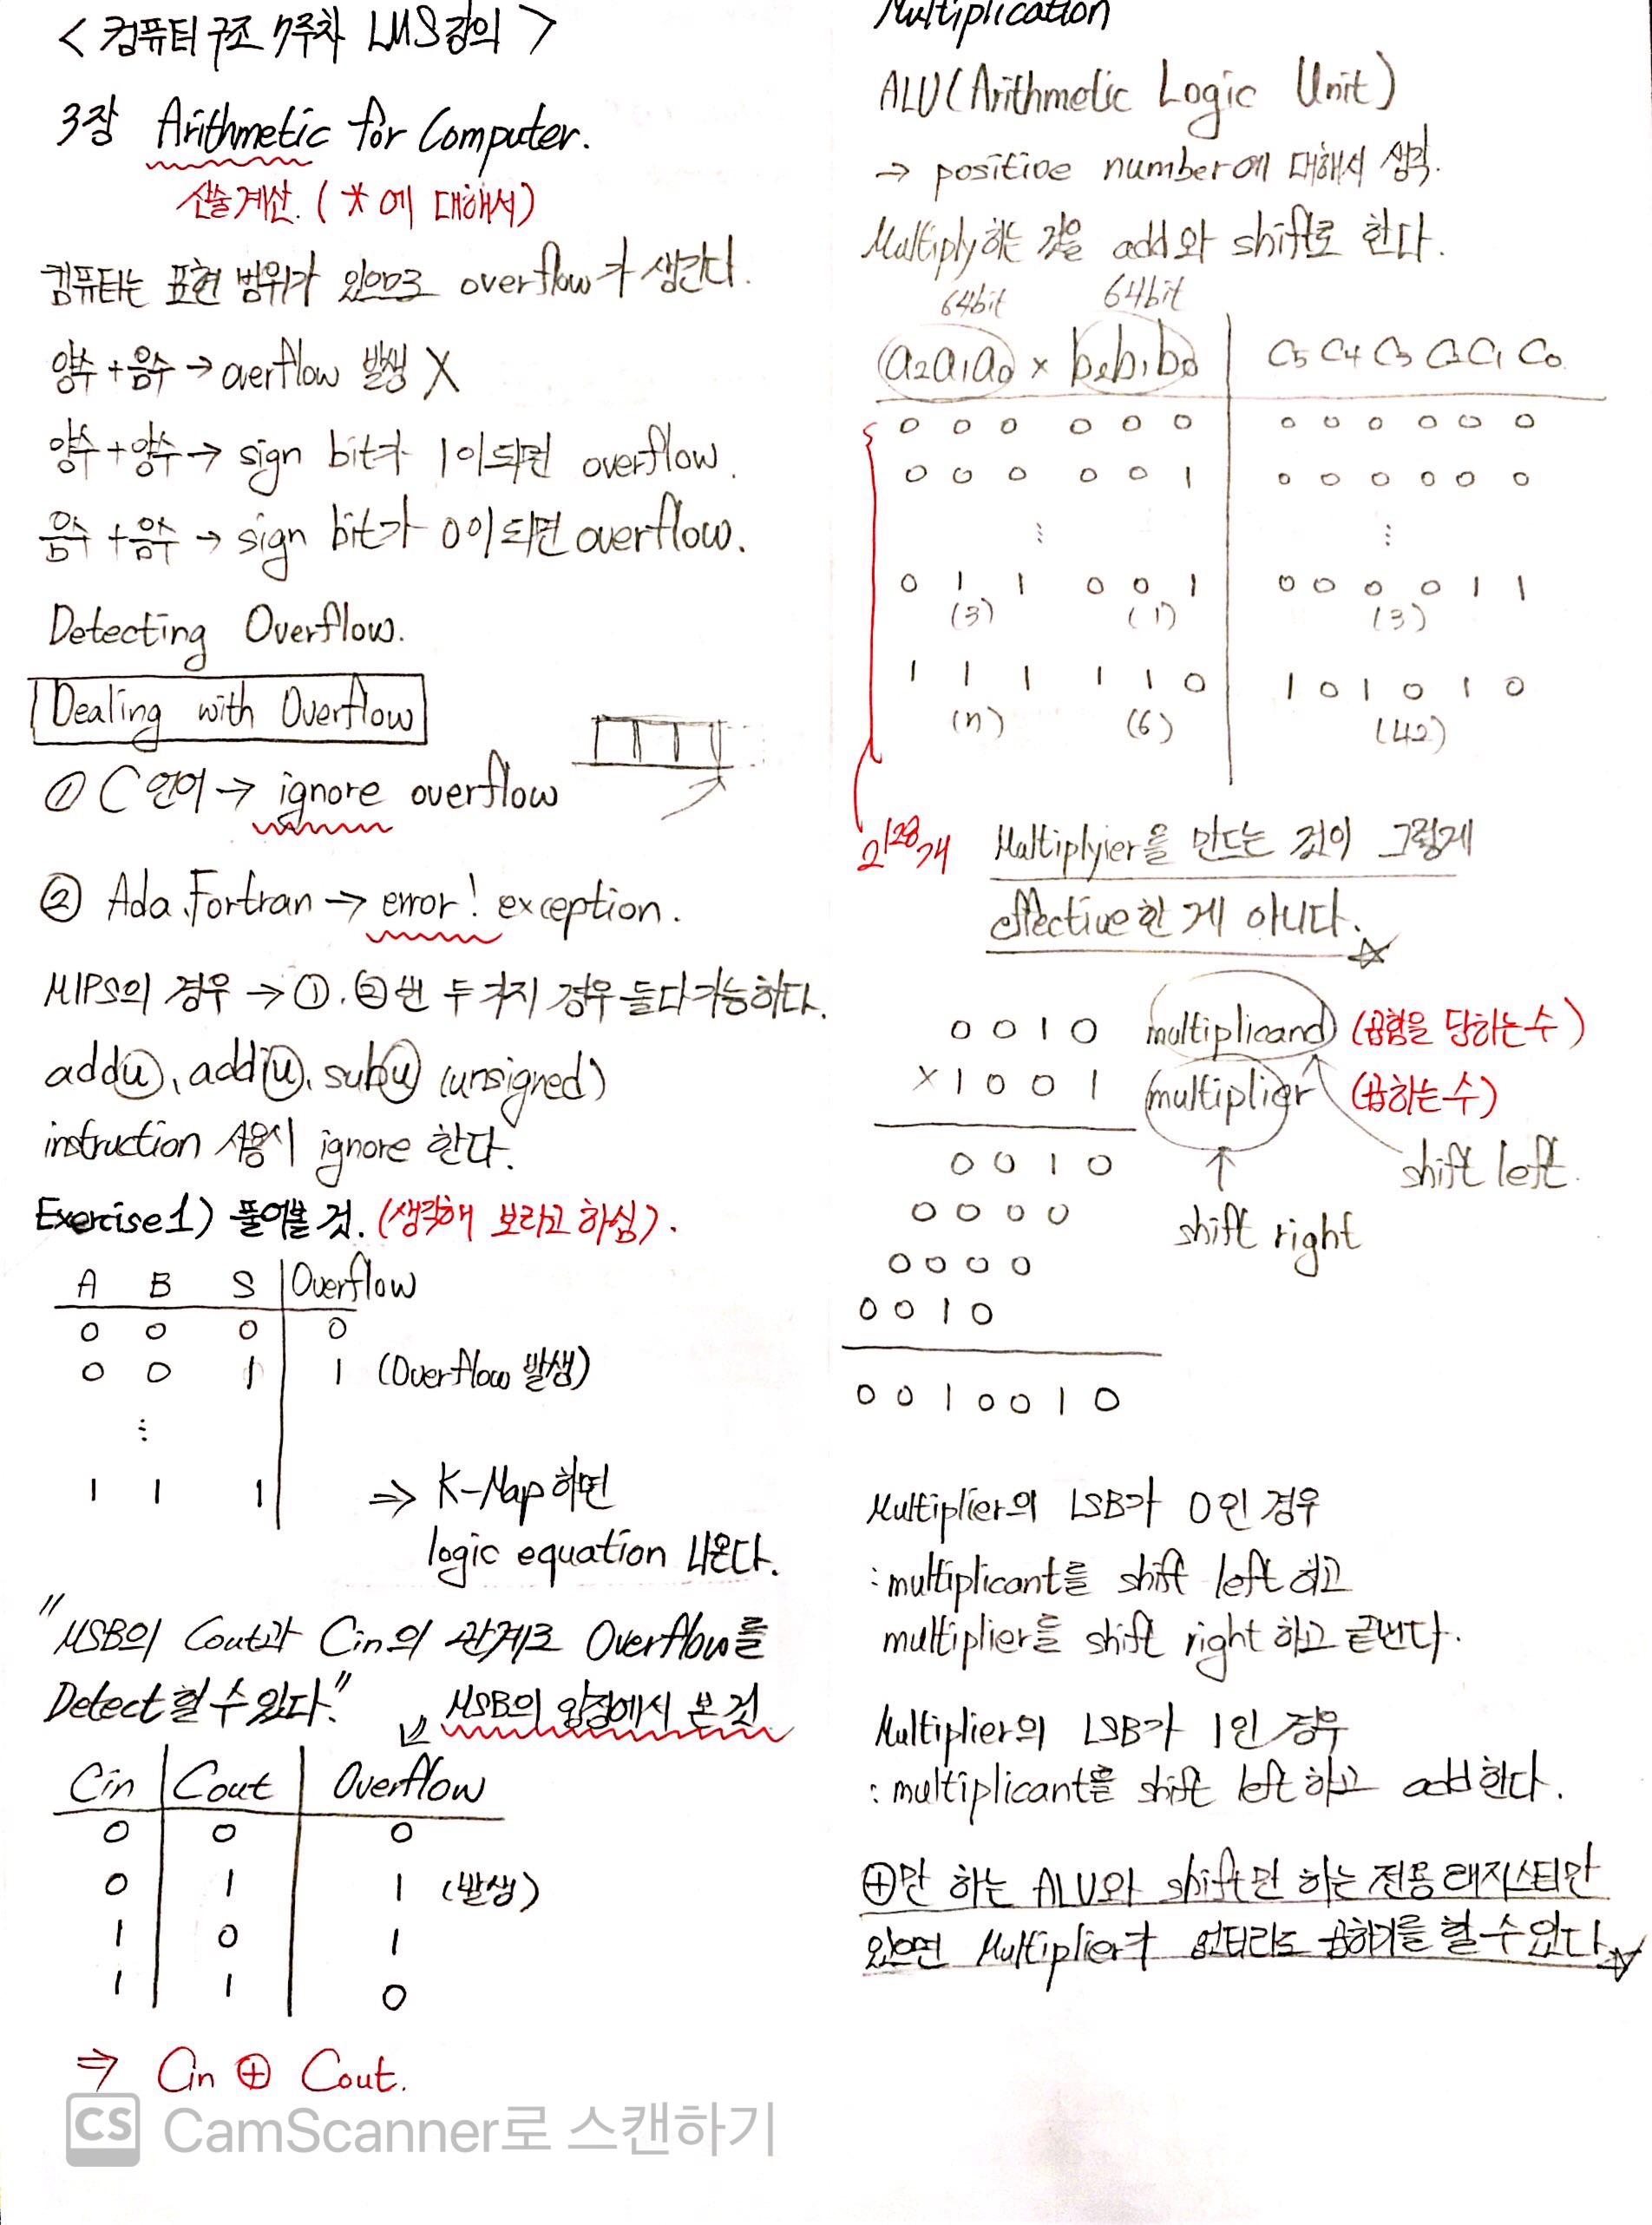 < 컴퓨터구조 7주차 LMS강의 >
3장 Arithmetic for Computer.
산술계산. ( * 에 대해서)
컴퓨터는 표현 범위가 있으므로 overflow가 생긴다.
양수+음수 → overflow 발생 X
양수+양수 → sign bit가 1이되면 overflow.
음수+음수 → sign bit가 0이되면 overflow.
Detecting Overflow.
Dealing with Overflow
① C언어 → ignore overflow
② Ada, Fortran → error! exception.
MIPS의 경우 → ①, ②번 두가지 경우 둘다가능하다.
addu, addiu, subu (unsigned)
instruction 사용시 ignore 한다.
Exercise1) 풀어볼 것. (생각해 보라고 하심).
A B S Overflow
0 0 0 0
0 0 1 1 (Overflow 발생)
⋮
1 1 1
⇒ K-Map 하면
logic equation 나온다.
"MSB의 Cout과 Cin의 관계로 Overflow를
Detect 할 수 있다."
MSB의 입장에서 본 것
Cin Cout Overflow
0 0 0
0 1 1 (발생)
1 0 1
1 1 0
⇒ Cin ⊕ Cout.
CS CamScanner로 스캔하기
Multiplication
ALU(Arithmetic Logic Unit)
→ positive number에 대해서 생각.
Multiply하는 것을 add와 shift로 한다.
64bit 64bit
a2a1a0 × b2b1b0 C5 C4 C3 C2 C1 C0
0 0 0 0 0 0 0 0 0 0 0 0
0 0 0 0 0 1 0 0 0 0 0 0
⋮ ⋮
0 1 1 0 0 1 0 0 0 0 1 1
(3) (1) (3)
1 1 1 1 1 0 1 0 1 0 1 0
(7) (6) (42)
2^128개
Multiplyier을 만드는 것이 그렇게
effective한 게 아니다.☆
0 0 1 0 multiplicand (곱함을 당하는수)
× 1 0 0 1 multiplier (곱하는수)
0 0 1 0 shift left.
0 0 0 0 shift right
0 0 0 0
0 0 1 0
0 0 1 0 0 1 0
Multiplier의 LSB가 0인 경우
: multiplicant를 shift left 하고
multiplier를 shift right 하고 끝낸다.
Multiplier의 LSB가 1인 경우
: multiplicant를 shift left 하고 add한다.
⊕만 하는 ALU와 shift만 하는 전용 래지스터만
있으면 Multiplier가 없더라도 곱하기를 할 수 있다.☆